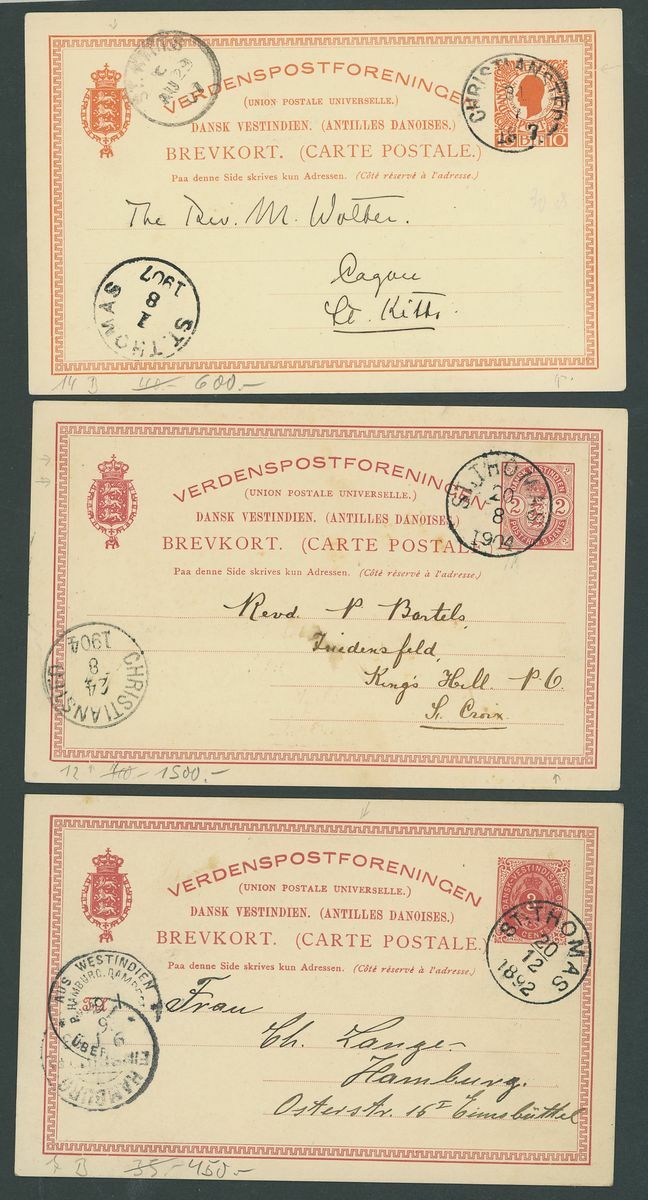 VERDENSPOSTFORENINGEN
(UNION POSTALE UNIVERSELLE.)
DANSK VESTINDIEN. (ANTILLES DANOISES.)
BREVKORT. (CARTE POSTALE.)
Paa denne Side skrives kun Adressen. (Côté réservé à l'adresse.)
CHRISTIANSTED
10
The Rev. M. Wolter.
Cayon
St. Kitts.
ST. THOMAS
1
8
1907
14 B 600.-
VERDENSPOSTFORENINGEN
(UNION POSTALE UNIVERSELLE.)
DANSK VESTINDIEN. (ANTILLES DANOISES)
BREVKORT. (CARTE POSTALE
Paa denne Side skrives kun Adressen. (Côté réservé à l'adresse.)
ST. THOMAS
20
8
1904
2 2
Revd P Bartels,
Friedensfeld,
King's Hill P.O.
St. Croix
CHRISTIANSTED
24
8
1904
12 1500.-
VERDENSPOSTFORENINGEN
(UNION POSTALE UNIVERSELLE.)
DANSK VESTINDIEN. (ANTILLES DANOISES.)
BREVKORT. (CARTE POSTALE.)
Paa denne Side skrives kun Adressen. (Côté réservé à l'adresse.)
3
CENTS
ST. THOMAS
20
12
1892
AUS WESTINDIEN
ÜBER
HAMBURG
Frau
Ch. Lange
Hamburg.
Osterstr. 16 I Eimsbüttel
B 35.- 450.-